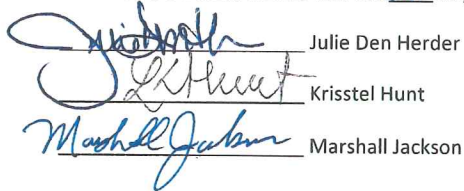 Julie Den Herder
LKHunt Krisstel Hunt
Marshall Jackson Marshall Jackson